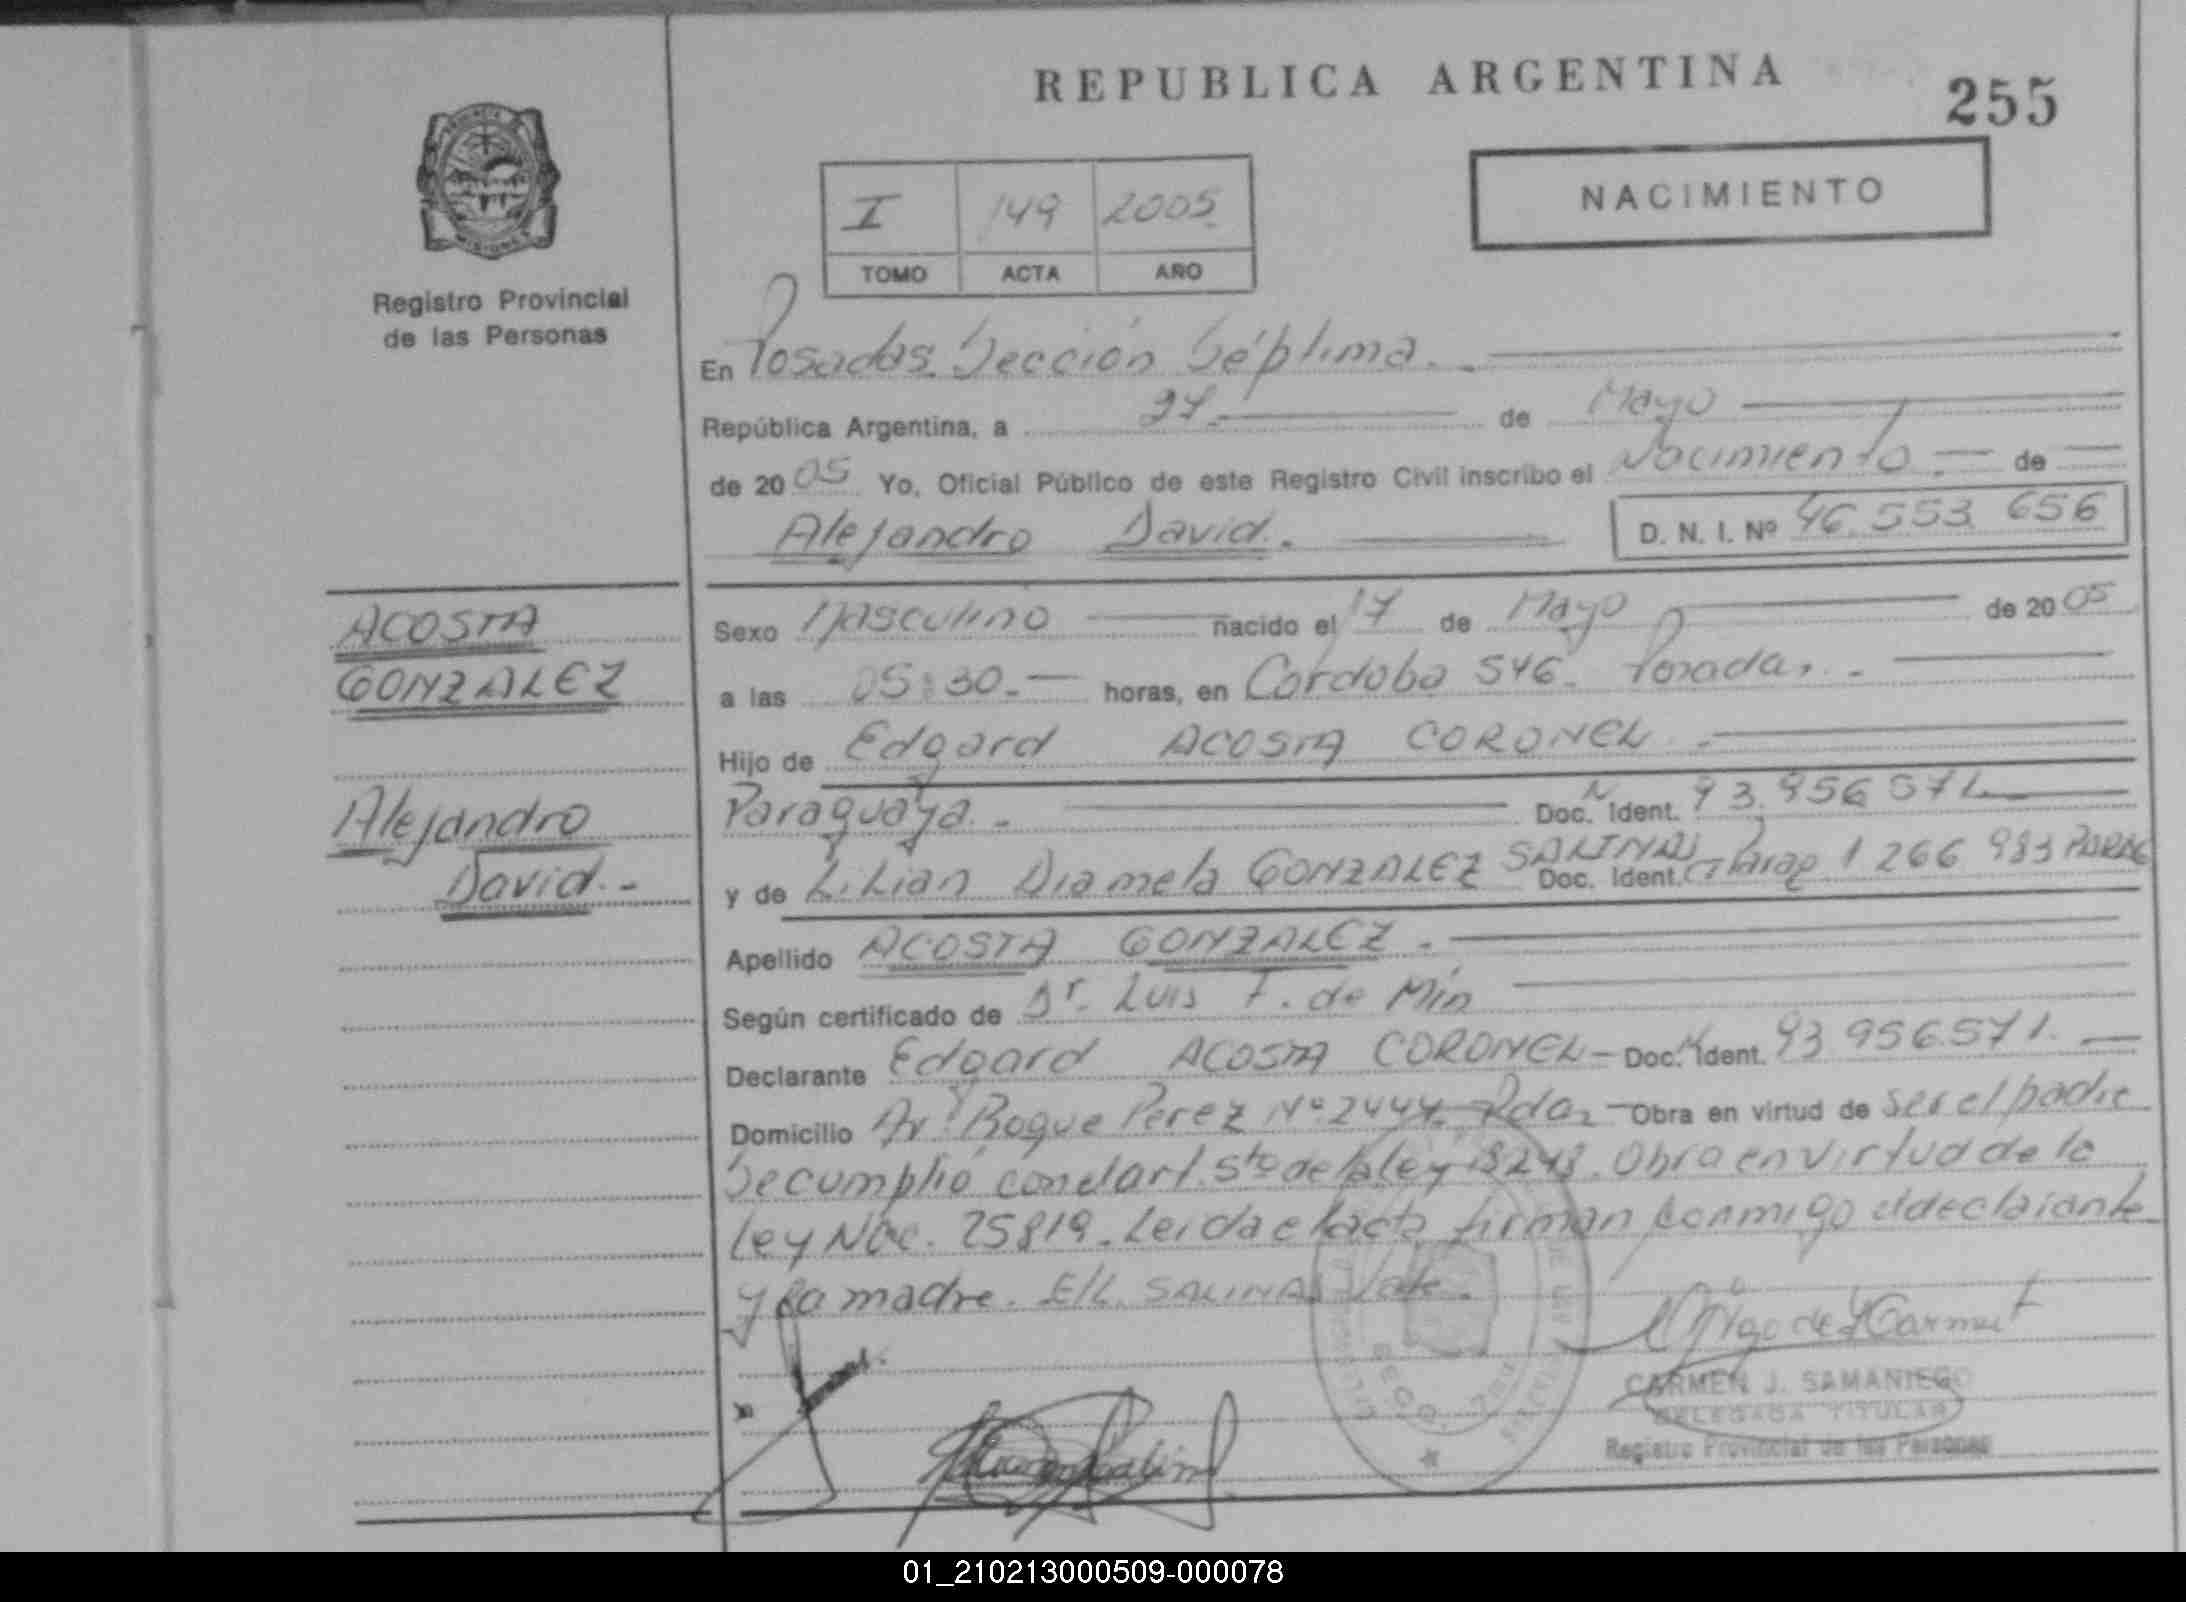 REPUBLICA ARGENTINA
255
NACIMIENTO
I 149 2005
TOMO ACTA AÑO
MISIONES
Registro Provincial
de las Personas
En Posadas Sección Séptima.
República Argentina, a 27 de Mayo
de 2005 Yo, Oficial Público de este Registro Civil inscribo el Nacimiento de
Alejandro David. D. N. I. Nº 46.553.656
ACOSTA
GONZALEZ
Alejandro
David.-
Sexo Masculino nacido el 17 de Mayo de 2005
a las 05:30.- horas, en Córdoba 546. Posadas.-
Hijo de Edgard ACOSTA CORONEL.
Paraguaya.- Doc. Ident. 93.956.571
y de Lilian Diamela GONZALEZ SALINAS Doc. Ident. 1 266 983
Apellido ACOSTA GONZALEZ.
Según certificado de Dr. Luis F. de Min
Declarante Edgard ACOSTA CORONEL Doc. Ident. 93 956.571.
Domicilio Av. Roque Perez Nº 2444. Pdas Obra en virtud de ser el padre
Se cumplió con el art. 5to de la ley 18248. Obra en virtud de la
Ley Nac. 25819. Leida el acta firman conmigo el declarante
y la madre. E/L. SALINAS Vale.
CARMEN J. SAMANIEGO
DELEGADA TITULAR
Registro Provincial de las Personas
01_210213000509-000078